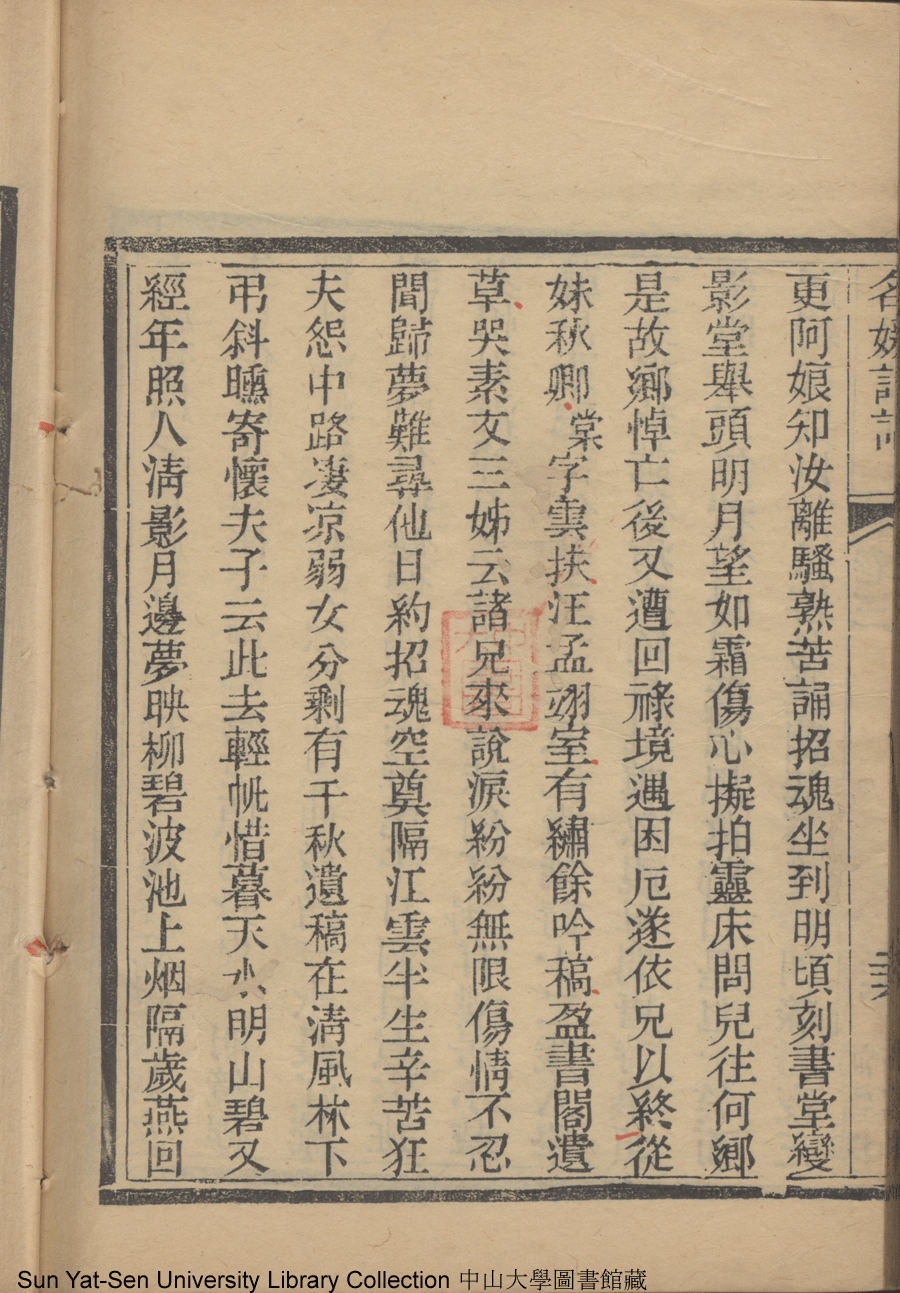 名媛詩話
二六
更阿娘知汝離騷熟苦誦招魂坐到明頃刻書堂變
影堂舉頭明月望如霜傷心擬拍靈床問兒往何鄉
是故鄉悼亡後又遭回祿境遇困厄遂依兄以終從
妹秋卿棠字雲扶汪孟翊室有繡餘吟稿盈書閣遺
草哭素文三姊云諸兄來說淚紛紛無限傷情不忍
聞歸夢難尋他日約招魂空奠隔江雲半生辛苦狂
夫怨中路凄凉弱女分剩有千秋遺稿在清風林下
弔斜曛寄懷夫子云此去輕帆惜暮天水明山碧又
經年照人清影月邊夢映柳碧波池上烟隔歲燕回
Sun Yat-Sen University Library Collection 中山大學圖書館藏